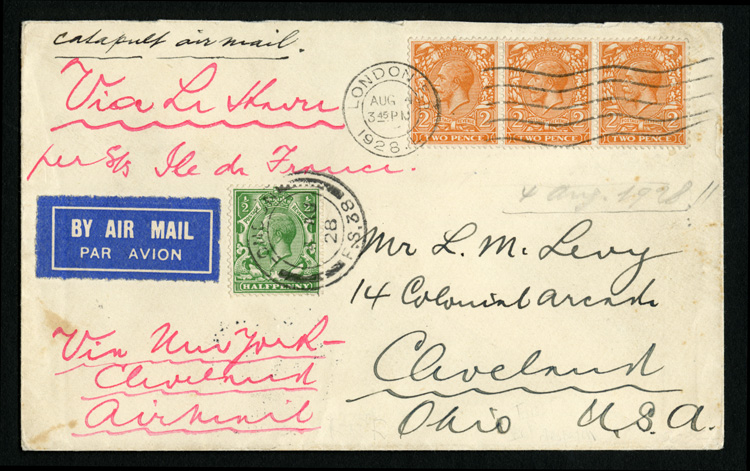 catapult air mail.
Via Le Havre
per S/s Ile de France.
LONDON
AUG 4
3 45 PM
1928
2 2
TWO PENCE
2 2
TWO PENCE
2 2
TWO PENCE
4 Aug. 1928 !!
BY AIR MAIL
PAR AVION
½ ½
HALFPENNY
28
F.S.38
Mr L. M. Levy
14 Colonial arcade
Cleveland
Ohio U.S.A.
Via New York-
Cleveland
Airmail